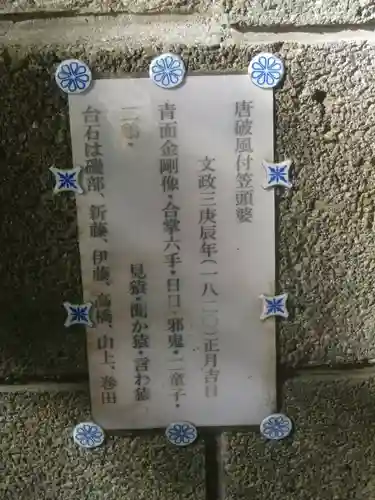 唐破風付笠頭婆
文政三庚辰年(一八二〇)正月吉日
青面金剛像・合掌六手・日日・邪鬼・二童子・
二鶏・
見猿・聞か猿・言わ猿
台石は磯部、新藤、伊藤、高橋、山上、巻田